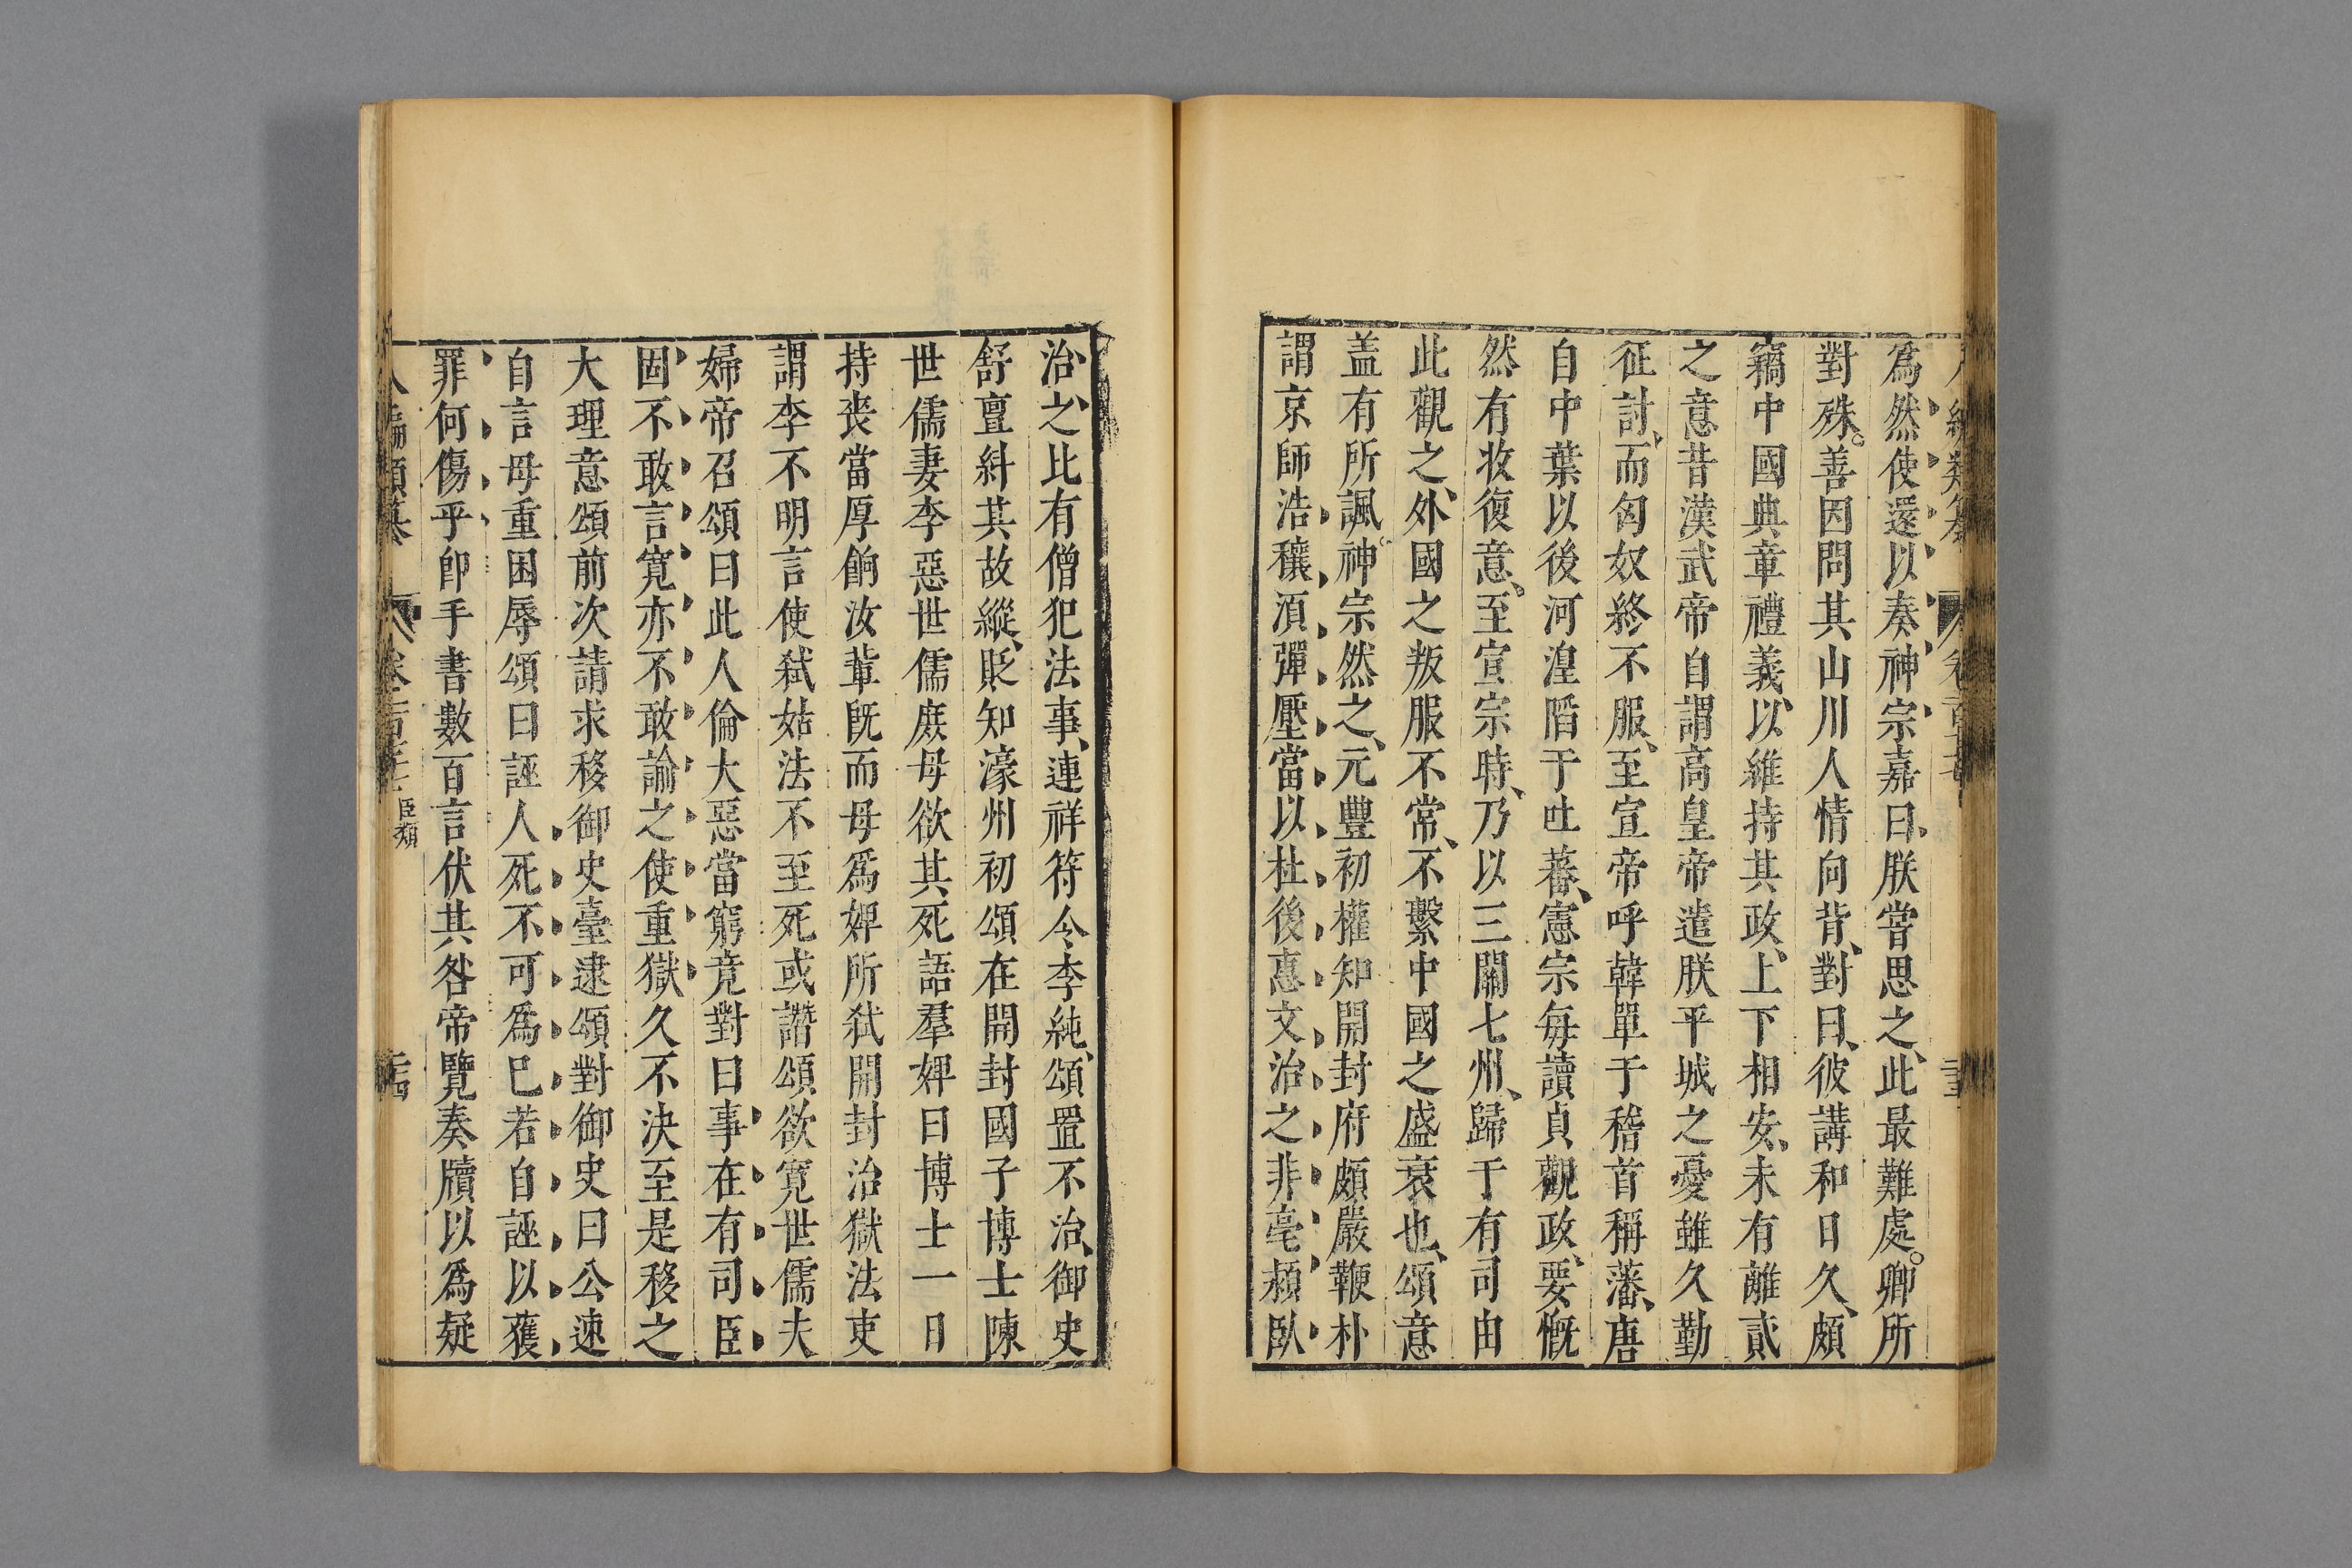 爲然使還以奏神宗嘉曰朕嘗思之此最難處卿所
對殊善因問其山川人情向背對曰彼講和日久頗
竊中國典章禮義以維持其政上下相安未有離貳
之意昔漢武帝自謂高皇帝遣朕平城之憂雖久勤
征討而匈奴終不服至宣帝呼韓單于稽首稱藩唐
自中葉以後河湟陷于吐蕃憲宗每讀貞觀政要慨
然有收復意至宣宗時乃以三關七州歸于有司由
此觀之外國之叛服不常不繫中國之盛衰也頌意
盖有所諷神宗然之元豐初權知開封府頗嚴鞭朴
謂京師浩穰湏彈壓當以柱後惠文治之非亳潁臥
治之比有僧犯法事連祥符令李純頌置不治御史
舒亶糾其故縱貶知濠州初頌在開封國子博士陳
世儒妻李惡世儒庶母欲其死語羣婢曰博士一日
持喪當厚餉汝輩既而母爲婢所弑開封治獄法吏
謂李不明言使弑姑法不至死或譖頌欲寬世儒夫
婦帝召頌曰此人倫大惡當窮竟對曰事在有司臣
固不敢言寬亦不敢諭之使重獄久不決至是移之
大理意頌前次請求移御史臺逮頌對御史曰公速
自言毋重困辱頌曰誣人死不可爲已若自誣以獲
罪何傷乎卽手書數百言伏其咎帝覽奏牘以爲疑
八編類纂 臣類